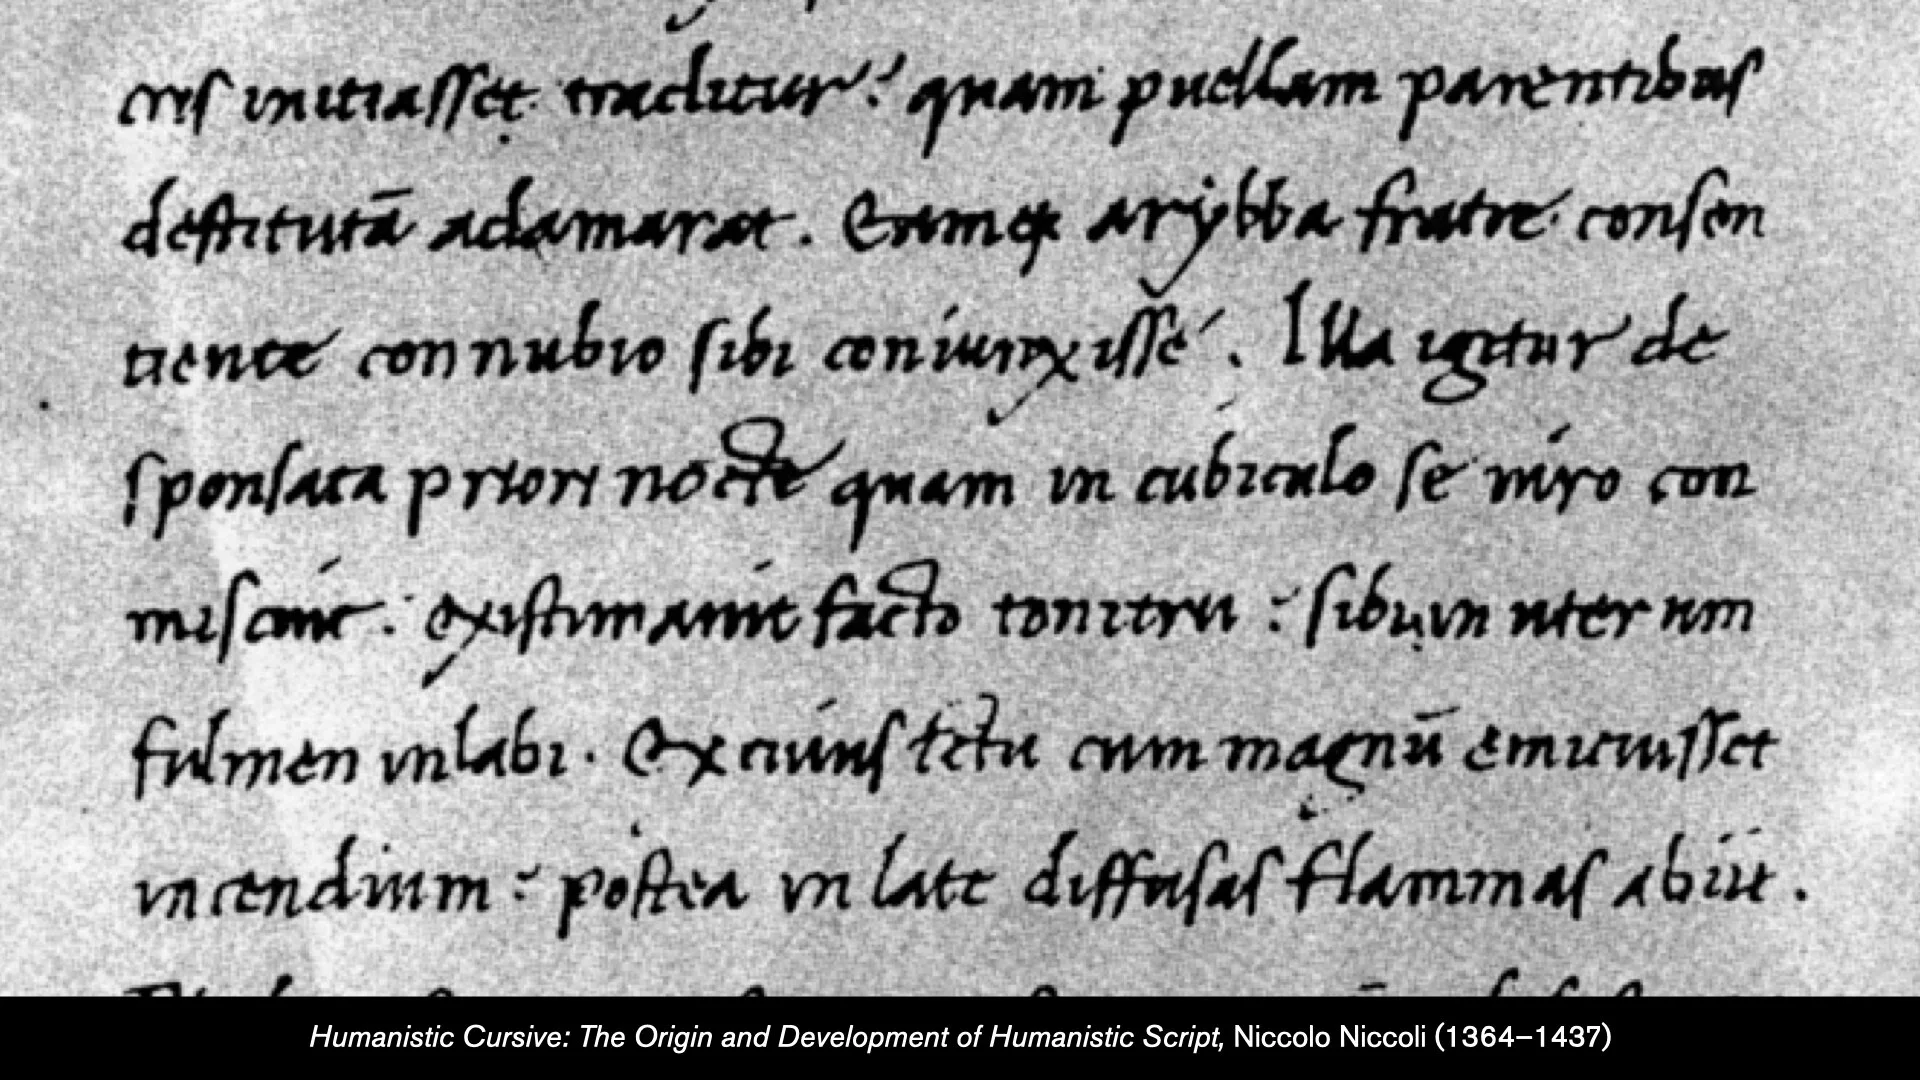 cris initiasset traditur: quam puellam parentibus
destitutā adamarat. Eamqꝫ arÿbba fratre consen
tiente connubio sibi coniunxisse. Illa igitur de
sponsata priori nocte quam in cubiculo se uiro con
misceret: existimauit facto tonitru: sibi in uterum
fulmen inlabi. Ex cuius ictu cum magnū emicuisset
incendium: postea in late diffusas flammas abiit.
Humanistic Cursive: The Origin and Development of Humanistic Script, Niccolo Niccoli (1364–1437)